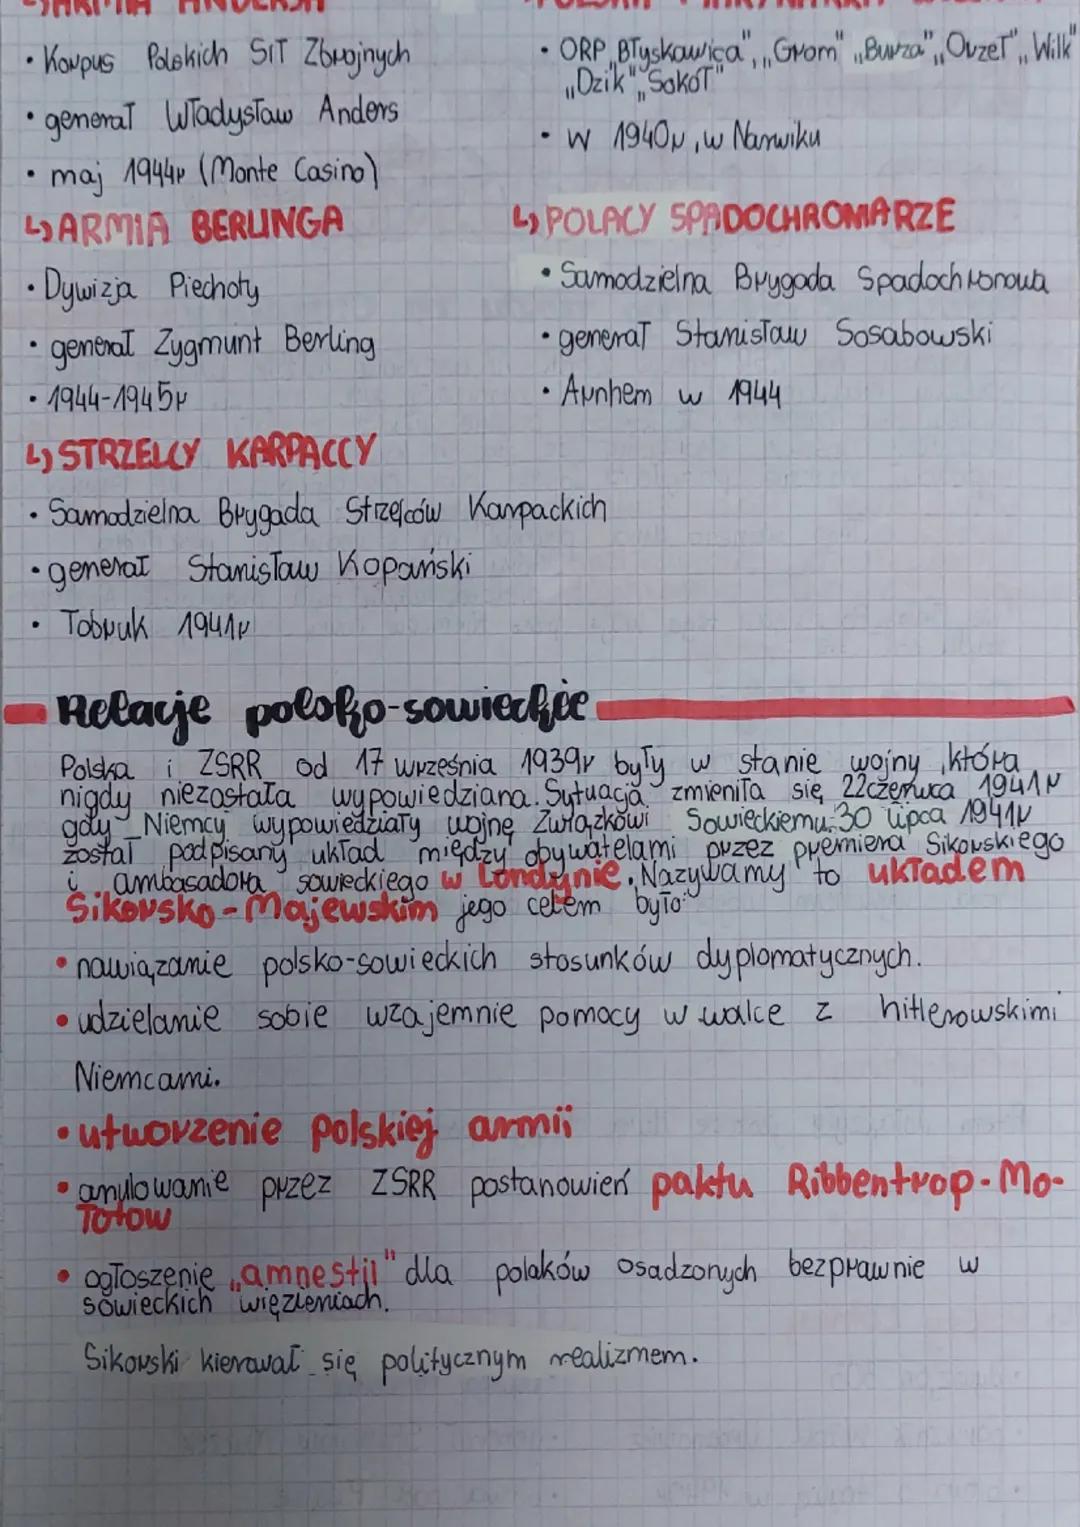 ARMIA ANDERSA
• Korpus Polskich Sił Zbrojnych
• generał Władysław Anders
• maj 1944r (Monte Casino)
↳ ARMIA BERLINGA
• Dywizja Piechoty
• generał Zygmunt Berling
• 1944-1945r
↳ STRZELCY KARPACCY
• Samodzielna Brygada Strzelców Karpackich
• generał Stanisław Kopański
• Tobruk 1941r
• ORP „Błyskawica", „Grom" „Burza" „Orzeł" „Wilk"
„Dzik" „Sokół"
• w 1940r, w Narwiku
↳ POLACY SPADOCHROMARZE
• Samodzielna Brygada Spadochronowa
• generał Stanisław Sosabowski
• Arnhem w 1944
Relacje polsko-sowieckie
Polska i ZSRR od 17 września 1939r były w stanie wojny, która
nigdy niezostała wypowiedziana. Sytuacja zmieniła się 22 czerwca 1941r
gdy Niemcy wypowiedziały wojnę Związkowi Sowieckiemu. 30 lipca 1941r
został podpisany układ między obywatelami przez premiera Sikorskiego
i ambasadora sowieckiego w Londynie. Nazywamy to układem
Sikorsko-Majewskim jego celem było:
• nawiązanie polsko-sowieckich stosunków dyplomatycznych.
• udzielanie sobie wzajemnie pomocy w walce z hitlerowskimi
Niemcami.
• utworzenie polskiej armii
• anulowanie przez ZSRR postanowień paktu Ribbentrop-Mo-
łotow
• ogłoszenie „amnestii" dla polaków osadzonych bezprawnie w
sowieckich więzieniach.
Sikorski kierował się politycznym realizmem.